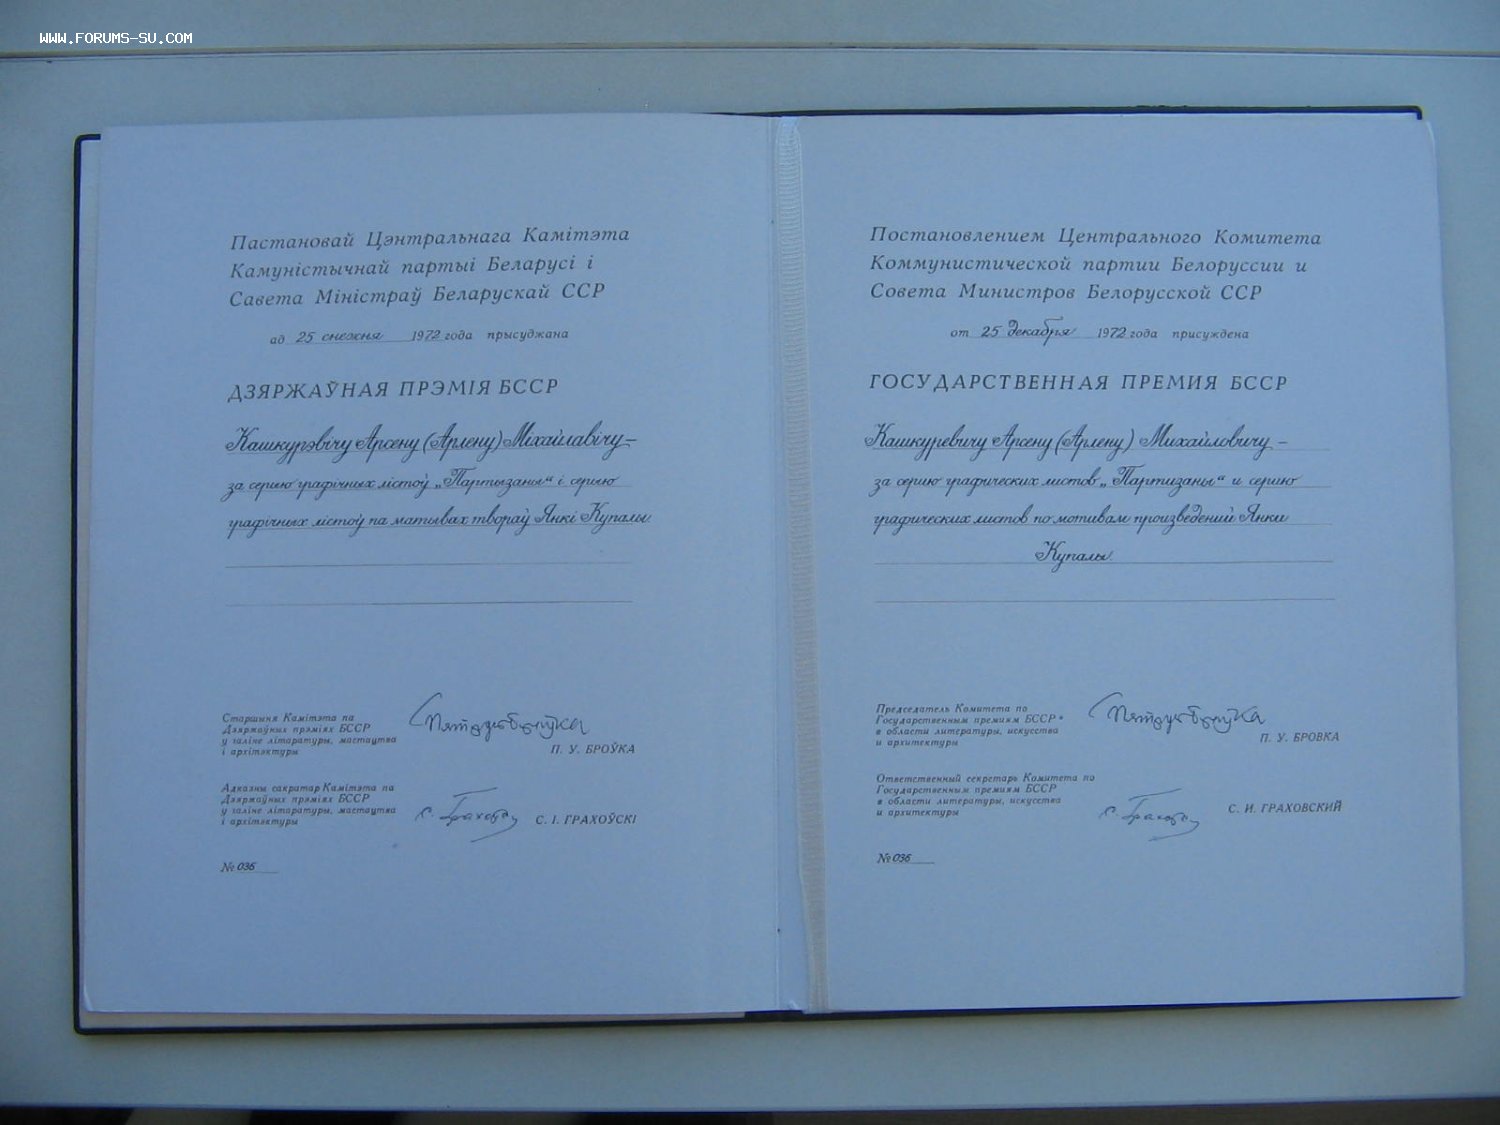 WWW.FORUMS-SU.COM
Пастановай Цэнтральнага Камітэта
Камуністычнай партыі Беларусі і
Савета Міністраў Беларускай ССР
ад 25 снежня 1972 года прысуджана
ДЗЯРЖАЎНАЯ ПРЭМІЯ БССР
Кашкурэвічу Арсену (Арлену) Міхайлавічу –
за серыю графічных лістоў „Партызаны“ і серыю
графічных лістоў па матывах твораў Янкі Купалы.
Старшыня Камітэта па
Дзяржаўных прэміях БССР
у галіне літаратуры, мастацтва
і архітэктуры
Пятрусь Броўка
П. У. БРОЎКА
Адказны сакратар Камітэта па
Дзяржаўных прэміях БССР
у галіне літаратуры, мастацтва
і архітэктуры
С. І. ГРАХОЎСКІ
№ 036
Постановлением Центрального Комитета
Коммунистической партии Белоруссии и
Совета Министров Белорусской ССР
от 25 декабря 1972 года присуждена
ГОСУДАРСТВЕННАЯ ПРЕМИЯ БССР
Кашкуревичу Арсену (Арлену) Михайловичу –
за серию графических листов „Партизаны“ и серию
графических листов по мотивам произведений Янки
Купалы.
Председатель Комитета по
Государственным премиям БССР
в области литературы, искусства
и архитектуры
Пятрусь Броўка
П. У. БРОВКА
Ответственный секретарь Комитета по
Государственным премиям БССР
в области литературы, искусства
и архитектуры
С. И. ГРАХОВСКИЙ
№ 036